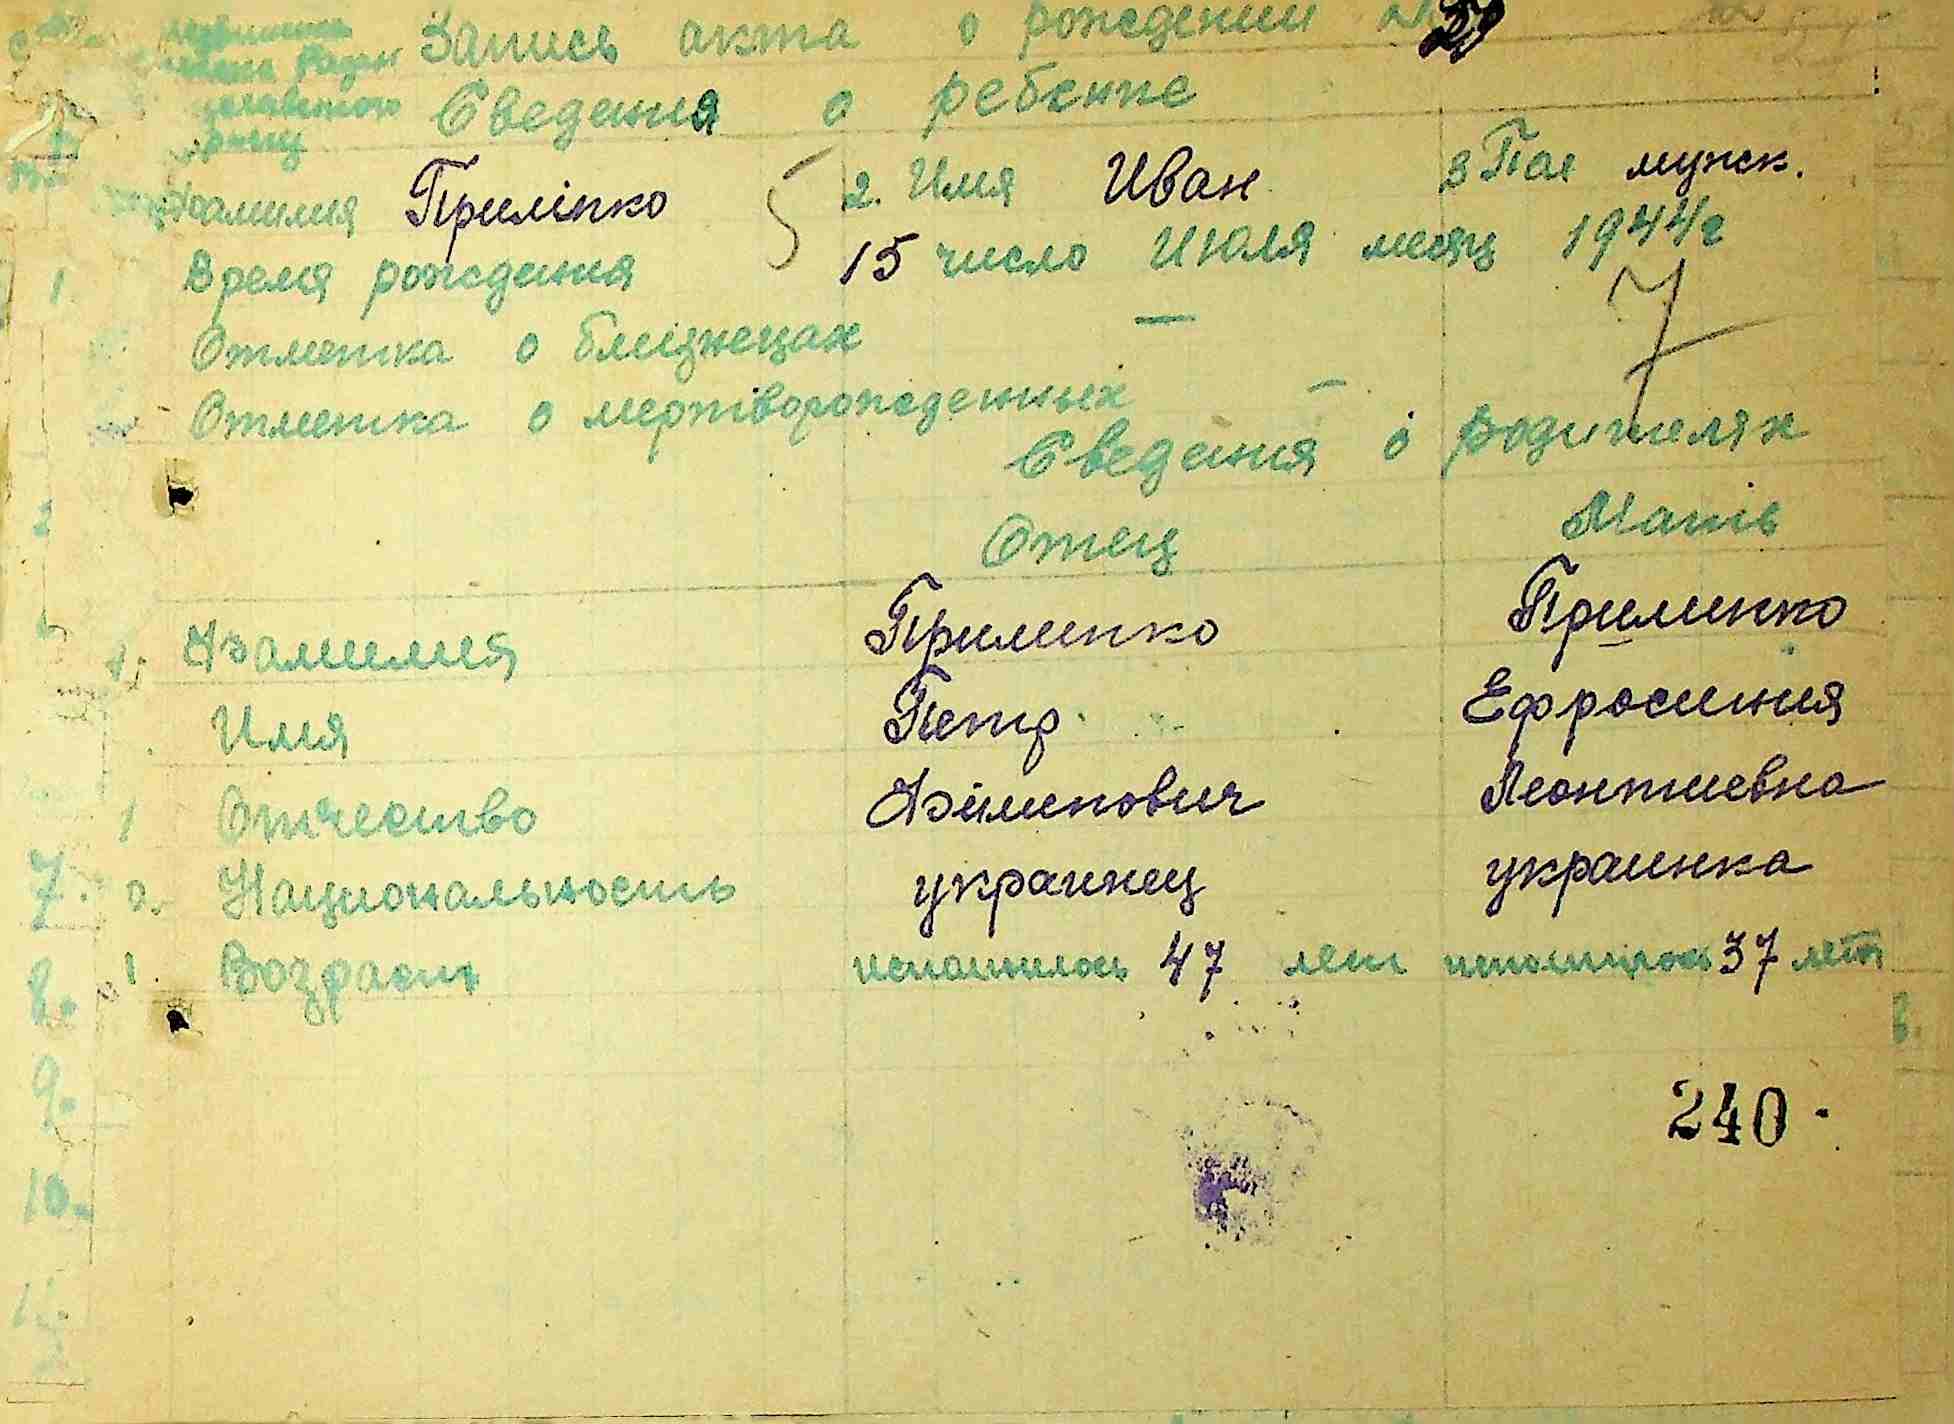 Запись акта о рождении № 29
Сведения о ребенке
Фамилия Приліпко 2. Имя Иван 3 Пол мужск.
Время рождения 15 число Июля месяц 1944 г
Отметка о близнецах —
Отметка о мертворожденных —
Сведения о родителях
Отец Мать
Фамилия Прилипко Прилипко
Имя Петр Ефросиния
Отчество Леонтиевна
Национальность украинец украинка
Возраст исполнилось 47 лет исполнилось 37 лет
7.
8.
9.
10.
11.
240